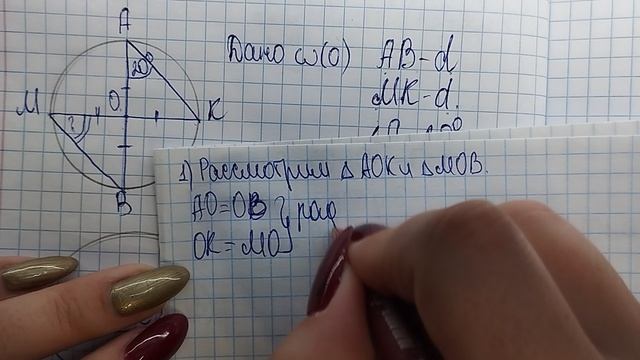 A
20°
Дано ω(O) AB-d
MK-d.
M
O
K
?
B
1) Рассмотрим △AOK и △MOB.
AO=OB } рад
OK=MO